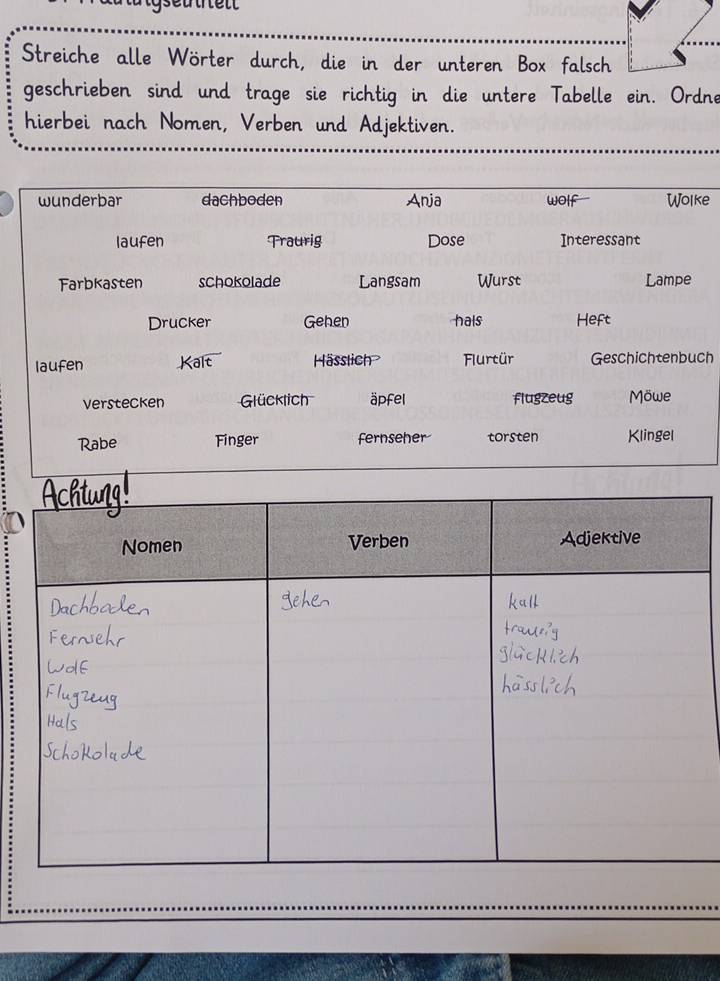 Streiche alle Wörter durch, die in der unteren Box falsch
geschrieben sind und trage sie richtig in die untere Tabelle ein. Ordne
hierbei nach Nomen, Verben und Adjektiven.
wunderbar dachboden Anja wolf Wolke
laufen Traurig Dose Interessant
Farbkasten schokolade Langsam Wurst Lampe
Drucker Gehen hals Heft
laufen Kalt Hässlich Flurtür Geschichtenbuch
verstecken Glücklich äpfel flugzeug Möwe
Rabe Finger fernseher torsten Klingel
Achtung!
Nomen Verben Adjektive
Dachboden gehen kalt
Fernsehr traurig
Wolf glücklich
Flugzeug hässlich
Hals
Schokolade